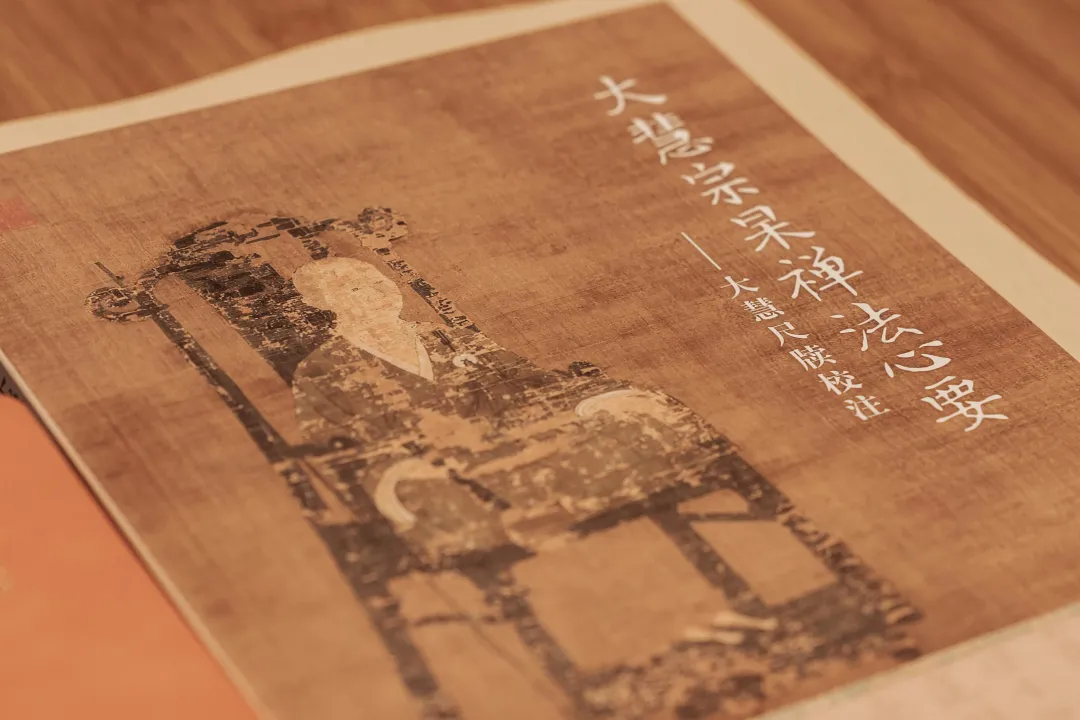 大慧宗杲禅法心要
——大慧尺牍校注